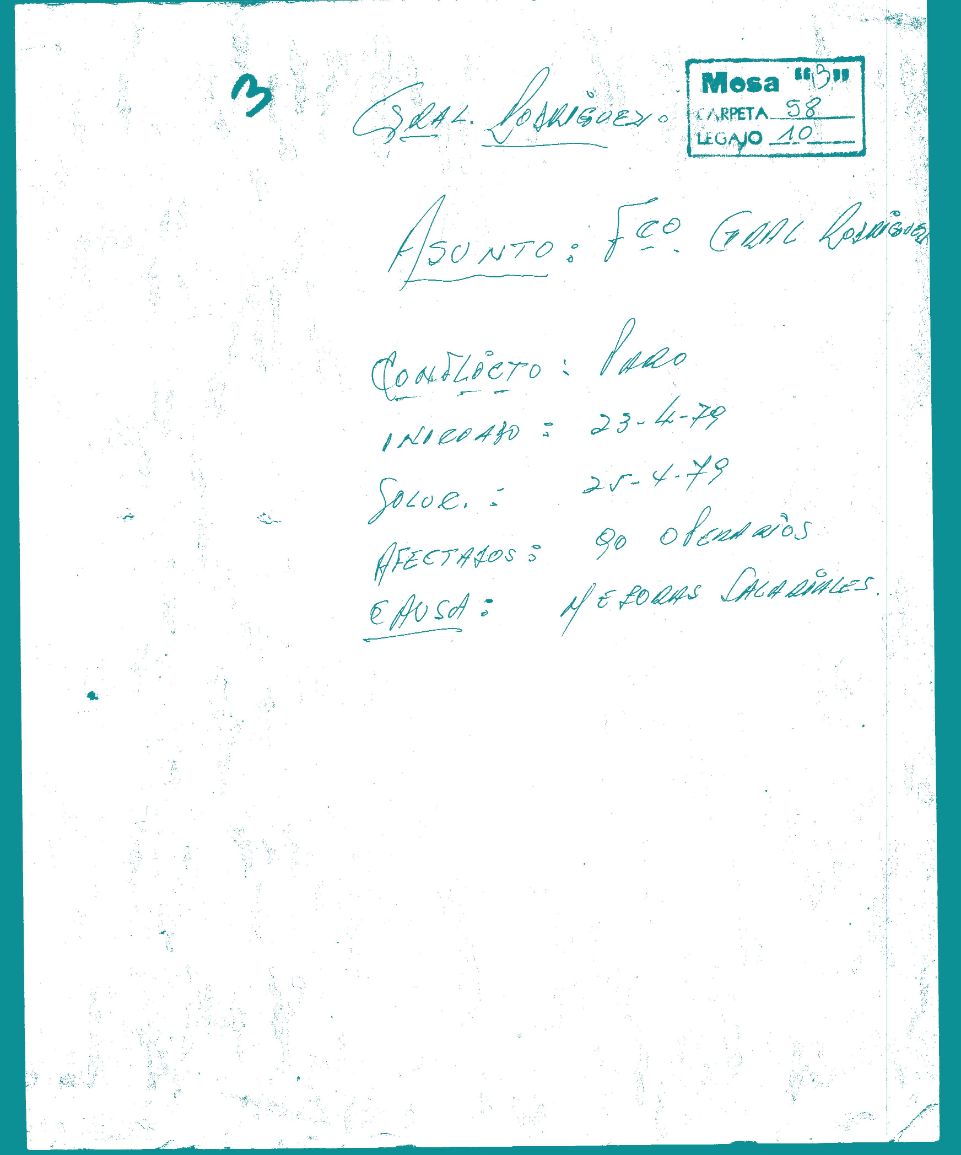 3
GRAL. RODRIGUEZ.
Mesa "B"
CARPETA 98
LEGAJO 10
ASUNTO: Fco. GRAL RODRIGUEZ
CONFLICTO: PARO
INICIADO: 23-4-79
SOLUC.: 25-4-79
AFECTADOS: 90 OPERARIOS
CAUSA: MEJORAS SALARIALES.